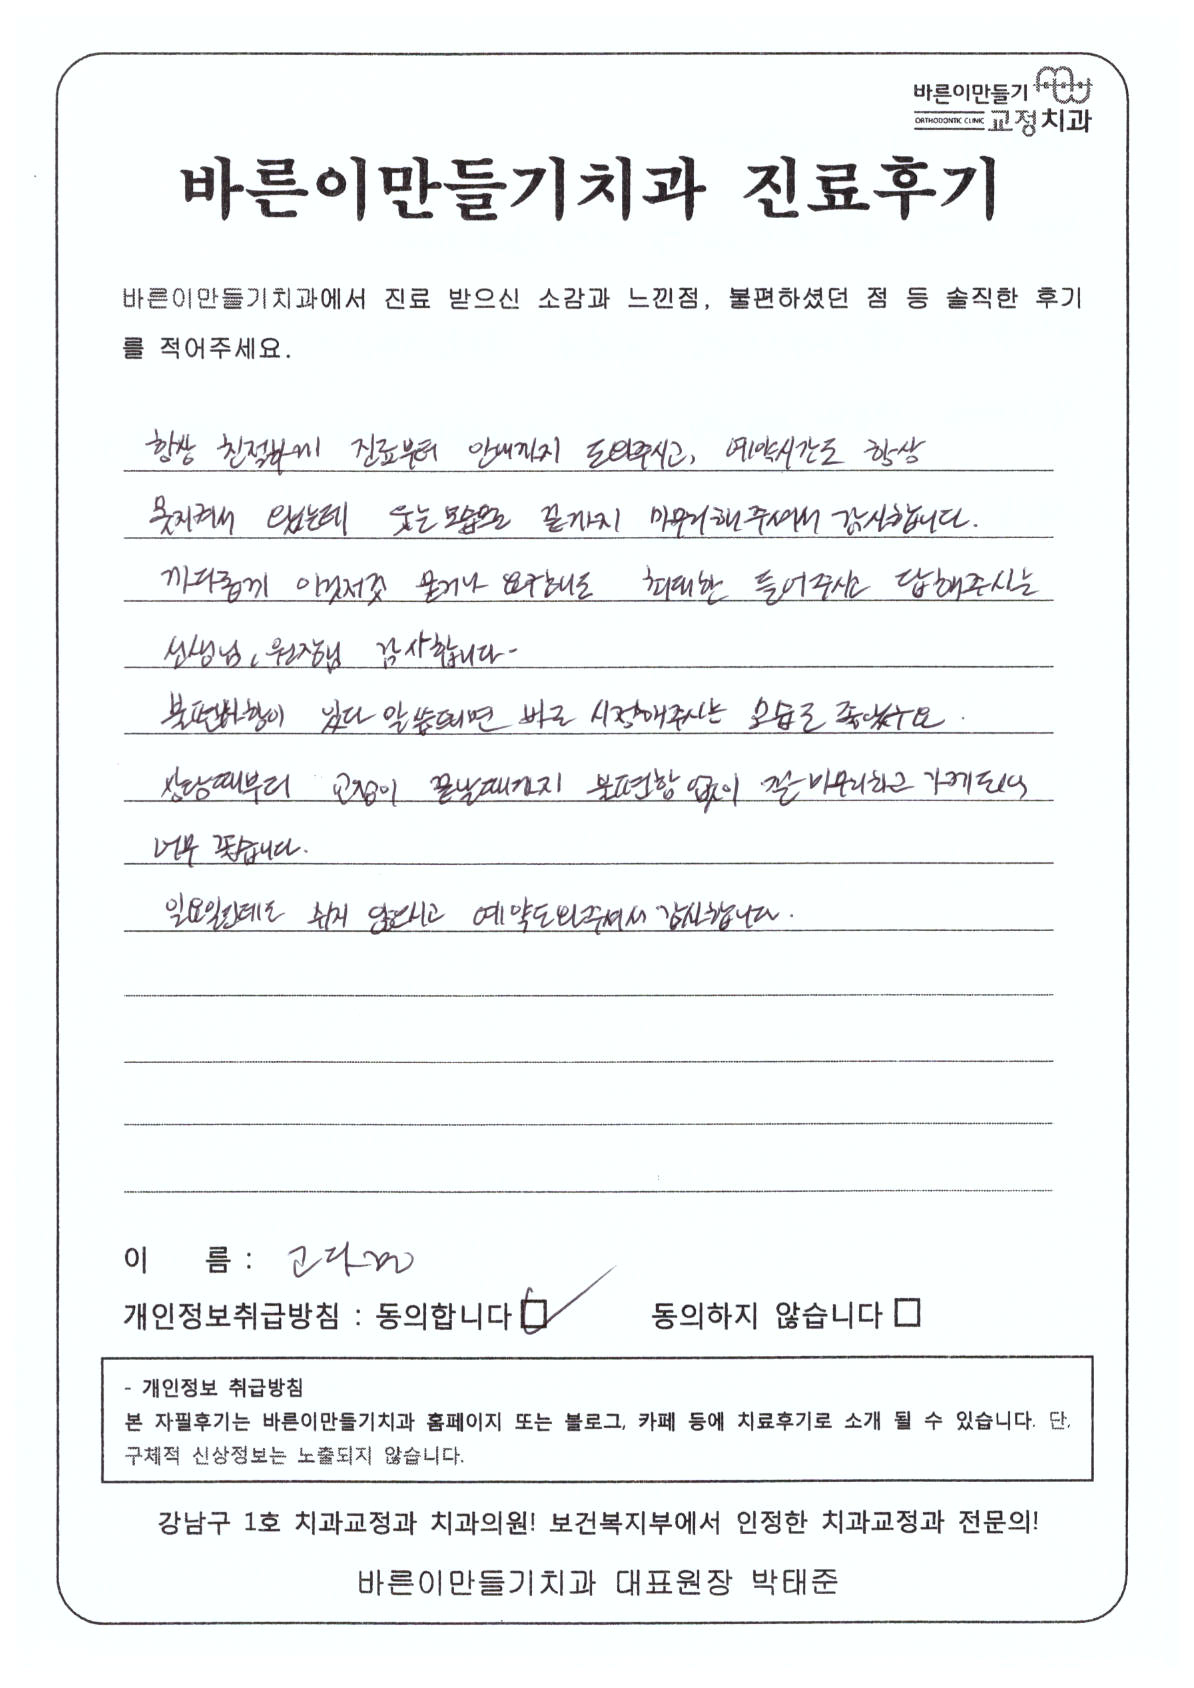 바른이만들기
ORTHODONTIC CLINIC 교정치과
바른이만들기치과 진료후기
바른이만들기치과에서 진료 받으신 소감과 느낀점, 불편하셨던 점 등 솔직한 후기
를 적어주세요.
항상 친절하게 진료부터 안내까지 도와주시고, 예약시간도 항상
못지켜서 왔는데 웃는 모습으로 끝까지 마무리해주셔서 감사합니다.
까다롭게 이것저것 묻거나 요청해도 최대한 들어주시고 답해주시는
선생님, 원장님 감사합니다-
불편사항이 있다 말씀드리면 바로 시정해주시는 모습도 좋았어요.
상담때부터 교정이 끝날때까지 불편함 없이 잘 마무리하고 가게되어
너무 좋습니다.
일요일인데도 쉬지 않으시고 예약도와주셔서 감사합니다.
이 름 : 고다
개인정보취급방침 : 동의합니다 동의하지 않습니다
- 개인정보 취급방침
본 자필후기는 바른이만들기치과 홈페이지 또는 블로그, 카페 등에 치료후기로 소개 될 수 있습니다. 단,
구체적 신상정보는 노출되지 않습니다.
강남구 1호 치과교정과 치과의원! 보건복지부에서 인정한 치과교정과 전문의!
바른이만들기치과 대표원장 박태준